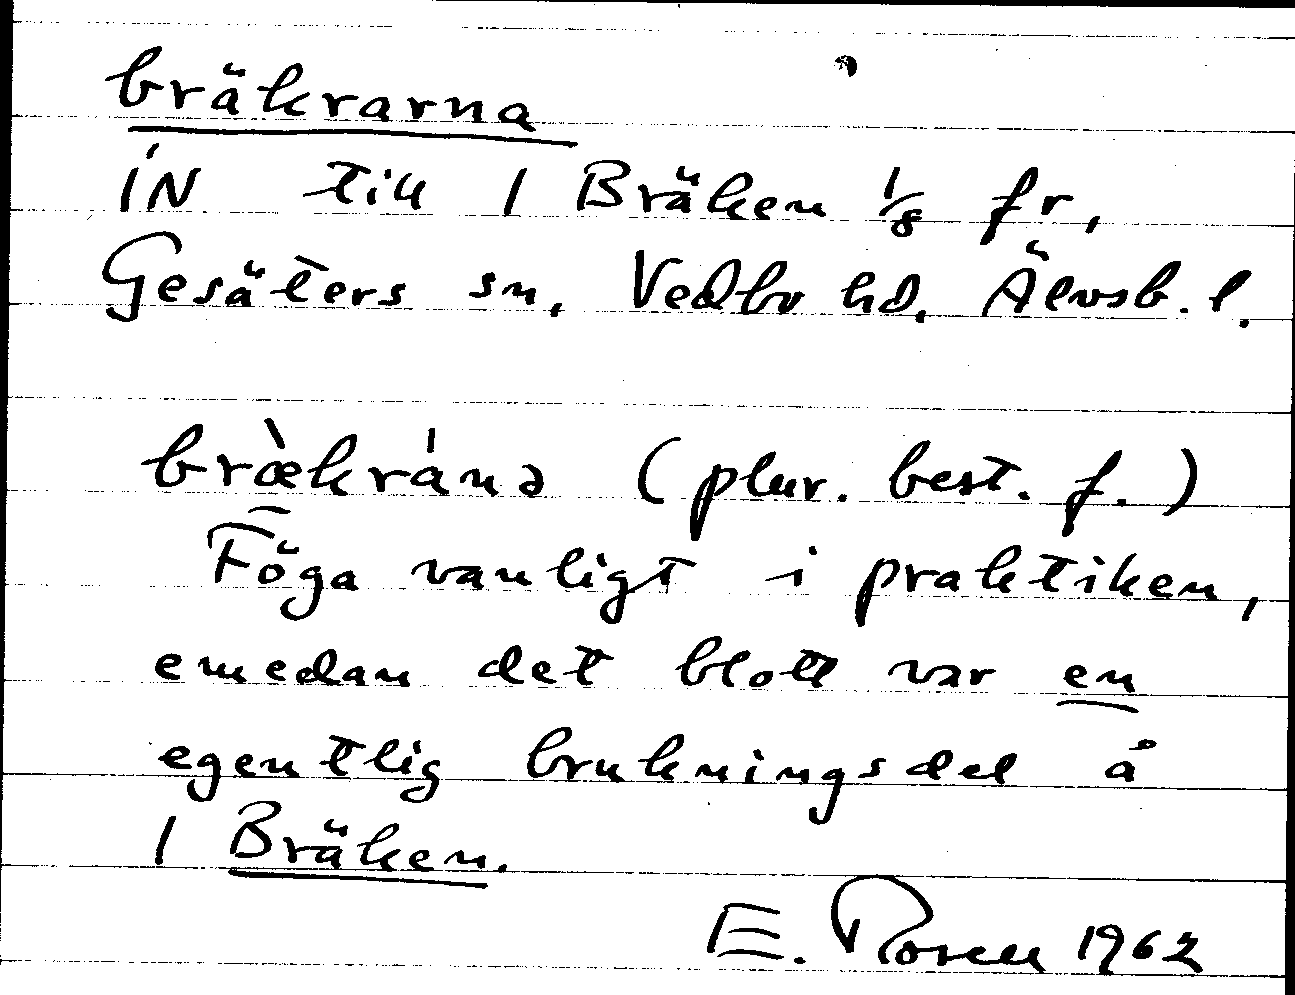 bräkrarna
IN till 1 Bräken 1/8 fr,
Gesäters sn, Vedbo hd, Älvsb. l.
bræ̀kránə (plur. best. f.)
Föga vanligt i praktiken,
emedan det blott var en
egentlig brukningsdel å
1 Bräken.
E. Rosell 1962